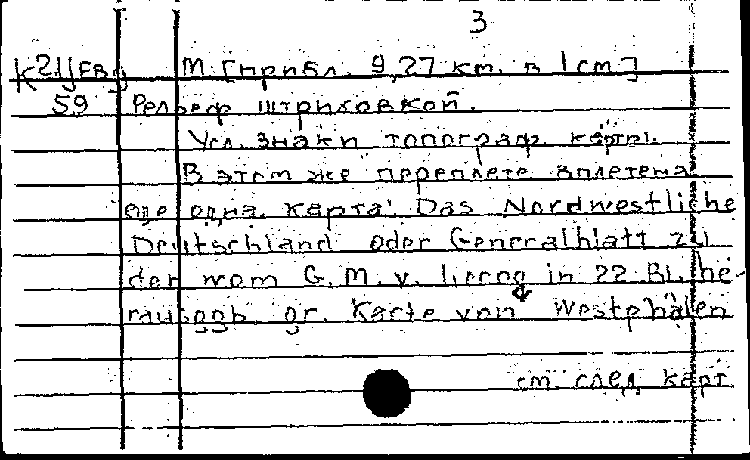 3
K21/FBg М. [прибл. 9,27 км. в 1см]
59 Рельеф штриховкой.
Усл. знаки топограф. карты.
В этом же переплете вплетена
еще одна карта: Das Nordwestliche
Deutschland oder Generalblatt zu
der vom G. M. v. Lecoq in 22 Bl. he-
rausgeb. gr. Karte von Westphalen
см. след карт